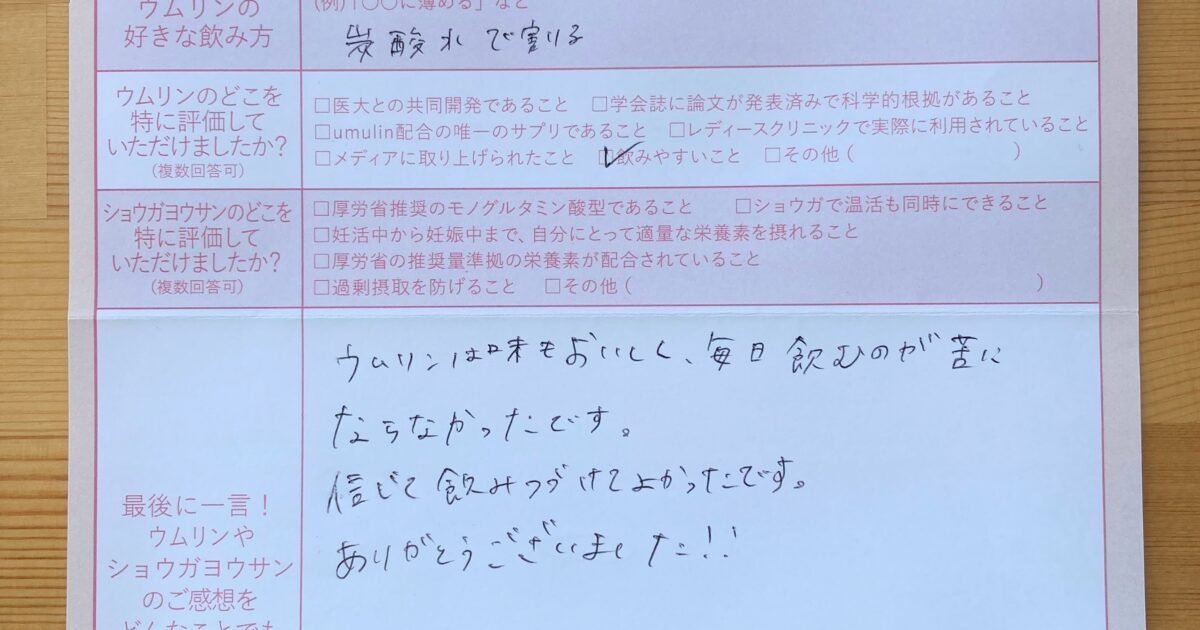 ウムリンの
好きな飲み方
(例)「○○に薄める」など
炭酸水で割る
ウムリンのどこを
特に評価して
いただけましたか?
(複数回答可)
□医大との共同開発であること □学会誌に論文が発表済みで科学的根拠があること
□umulin配合の唯一のサプリであること □レディースクリニックで実際に利用されていること
□メディアに取り上げられたこと ☑飲みやすいこと □その他( )
ショウガヨウサンのどこを
特に評価して
いただけましたか?
(複数回答可)
□厚労省推奨のモノグルタミン酸型であること □ショウガで温活も同時にできること
□妊活中から妊娠中まで、自分にとって適量な栄養素を摂れること
□厚労省の推奨量準拠の栄養素が配合されていること
□過剰摂取を防げること □その他( )
最後に一言!
ウムリンや
ショウガヨウサン
のご感想を
どんなことでも
ウムリンは味もおいしく、毎日飲むのが苦に
ならなかったです。
信じて飲みつづけてよかったです。
ありがとうございました!!